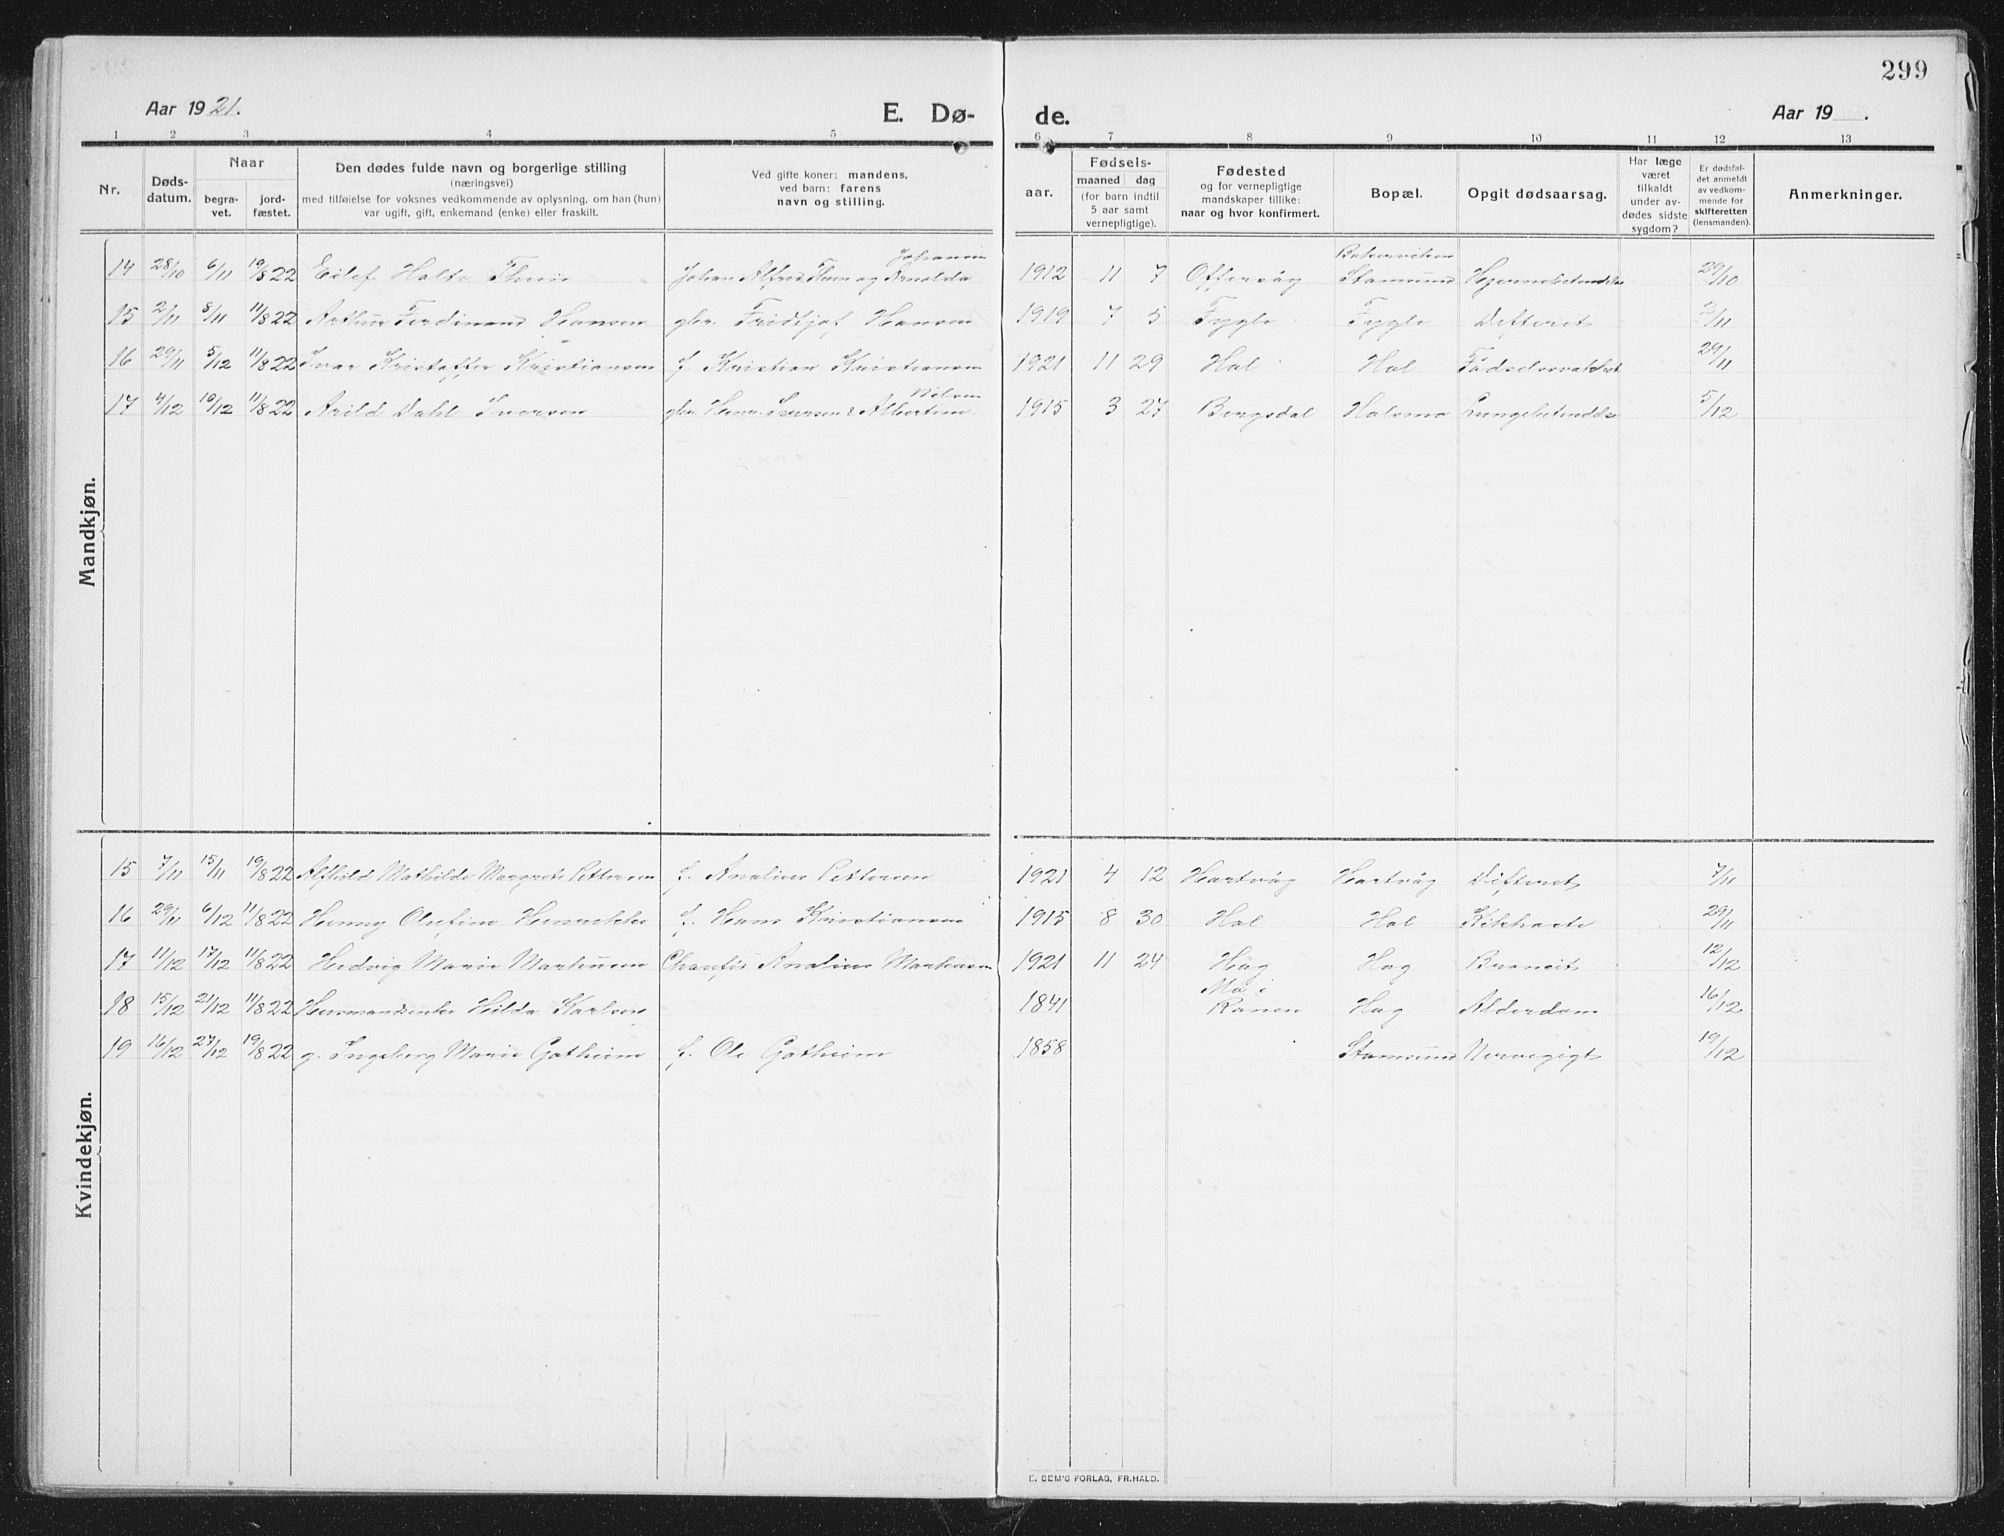 299
Aar 1921.
E. Dø-
de.
Aar 19 .
1 2 3 4 5 6 7 8 9 10 11 12 13
Nr.
Døds-
datum.
Naar
begra-
vet.
jord-
fæstet.
Den dødes fulde navn og borgerlige stilling
(næringsvei)
med tilføielse for voksnes vedkommende av oplysning, om han (hun)
var ugift, gift, enkemand (enke) eller fraskilt.
Ved gifte koner: mandens,
ved barn: farens
navn og stilling.
aar.
Fødsels-
maaned dag
(for barn indtil
5 aar samt
vernepligtige).
Fødested
og for vernepligtige
mandskaper tillike:
naar og hvor konfirmert.
Bopæl.
Opgit dødsaarsag.
Har læge
været
tilkaldt
under av-
dødes sidste
sygdom?
Er dødsfal-
det anmeldt
av vedkom-
mende for
skifteretten
(lensmanden).
Anmerkninger.
Mandkjøn.
14 28/10 6/11 19/8 22 Eilef Holte Johan Alfred og Arnolda Johansen 1912 11 7 Offersøy Stamsund 29/10
15 2/11 8/11 11/8 22 Arthur Ferdinand Hansen gbr. Fridtjof Hansen 1919 7 5 Fygle Fygle Difterit 2/11
16 29/11 5/12 11/8 22 Ivar Kristoffer Kristiansen f. Kristian Kristiansen 1921 11 29 Hol Hol Fødselssvakhet 29/11
17 4/12 10/12 11/8 22 Arild Dahl Iversen gbr. Henr. Iversen & Albertine Nilsen 1915 3 27 Borgsdal Holsmo Lungebetendelse 5/12
Kvindekjøn.
15 7/11 15/11 19/8 22 Alfhild Mathilde Margrete Pettersen f. Analius Pettersen 1921 4 12 Hartvåg Hartvåg Difterit 7/11
16 29/11 6/12 11/8 22 Henny Olufine f. Hans Kristiansen 1915 8 30 Hol Hol Kikhoste 29/11
17 11/12 17/12 11/8 22 Hedvig Marie Markusen Analius Markusen 1921 11 24 Hag Hag Bronkit 12/12
18 15/12 21/12 11/8 22 Husmandsenke Hilda Karlsen 1841 Mo i Ranen Hag Alderdom 16/12
19 16/12 27/12 19/8 22 g. Ingeborg Marie Gotheim f. Ole Gotheim 1858 Stamsund Nervegigt 19/12
E. SEM'S FORLAG, FR.HALD.